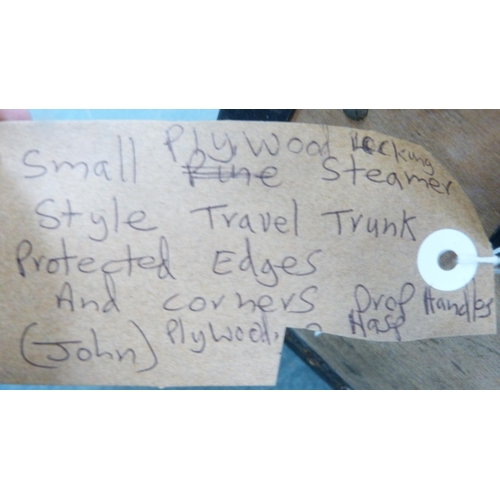 Plywood Locking
Small Pine Steamer
Style Travel Trunk
Protected Edges
And corners Drop Handles
(John) Plywood Hasp